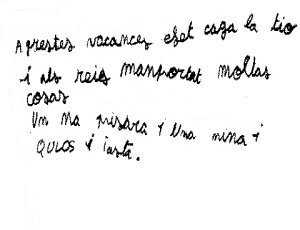 A prestes vacances eset caga la tio
i als reis manportat moltas
cosas
Un na pisara i Una nina i
QULOS i iasta.